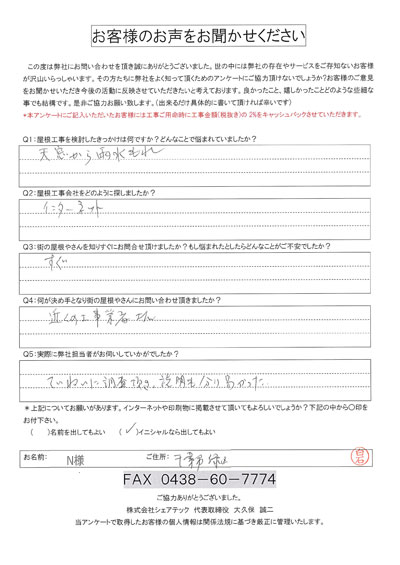 お客様のお声をお聞かせください
この度は弊社にお問い合わせを頂き誠にありがとうございました。世の中には弊社の存在やサービスをご存知ないお客様
が沢山いらっしゃいます。その方たちに弊社をよく知って頂くためのアンケートにご協力頂けないでしょうか?お客様のご意見
をお聞かせいただき今後の活動に反映させていただきたいと考えております。良かったこと、嬉しかったことどのような些細な
事でも結構です。是非ご協力お願い致します。(出来るだけ具体的に書いて頂ければ幸いです)
*本アンケートにご記入いただいたお客様には工事ご用命時に工事金額(税抜き)の 2%をキャッシュバックさせていただきます。
Q1:屋根工事を検討したきっかけは何ですか?どんなことで悩まれていましたか?
天窓から雨水もれ
Q2:屋根工事会社をどのように探しましたか?
インターネット
Q3:街の屋根やさんを知りすぐにお問合せ頂けましたか?もし悩まれたとしたらどんなことがご不安でしたか?
すぐ
Q4:何が決め手となり街の屋根やさんにお問い合わせ頂きましたか?
近くの工事業者さん
Q5:実際に弊社担当者がお伺いしていかがでしたか?
ていねいに調査頂き、説明も分り易かった
*上記についてお願いがあります。インターネットや印刷物に掲載させて頂いてもよろしいでしょうか?下記の中から〇印を
お付下さい。
( )名前を出してもよい (✓)イニシャルなら出してもよい
お名前: N様 ご住所: 千葉県 白石
FAX 0438-60-7774
ご協力ありがとうございました。
株式会社シェアテック 代表取締役 大久保 誠二
当アンケートで取得したお客様の個人情報は関係法規に基づき厳正に管理いたします。